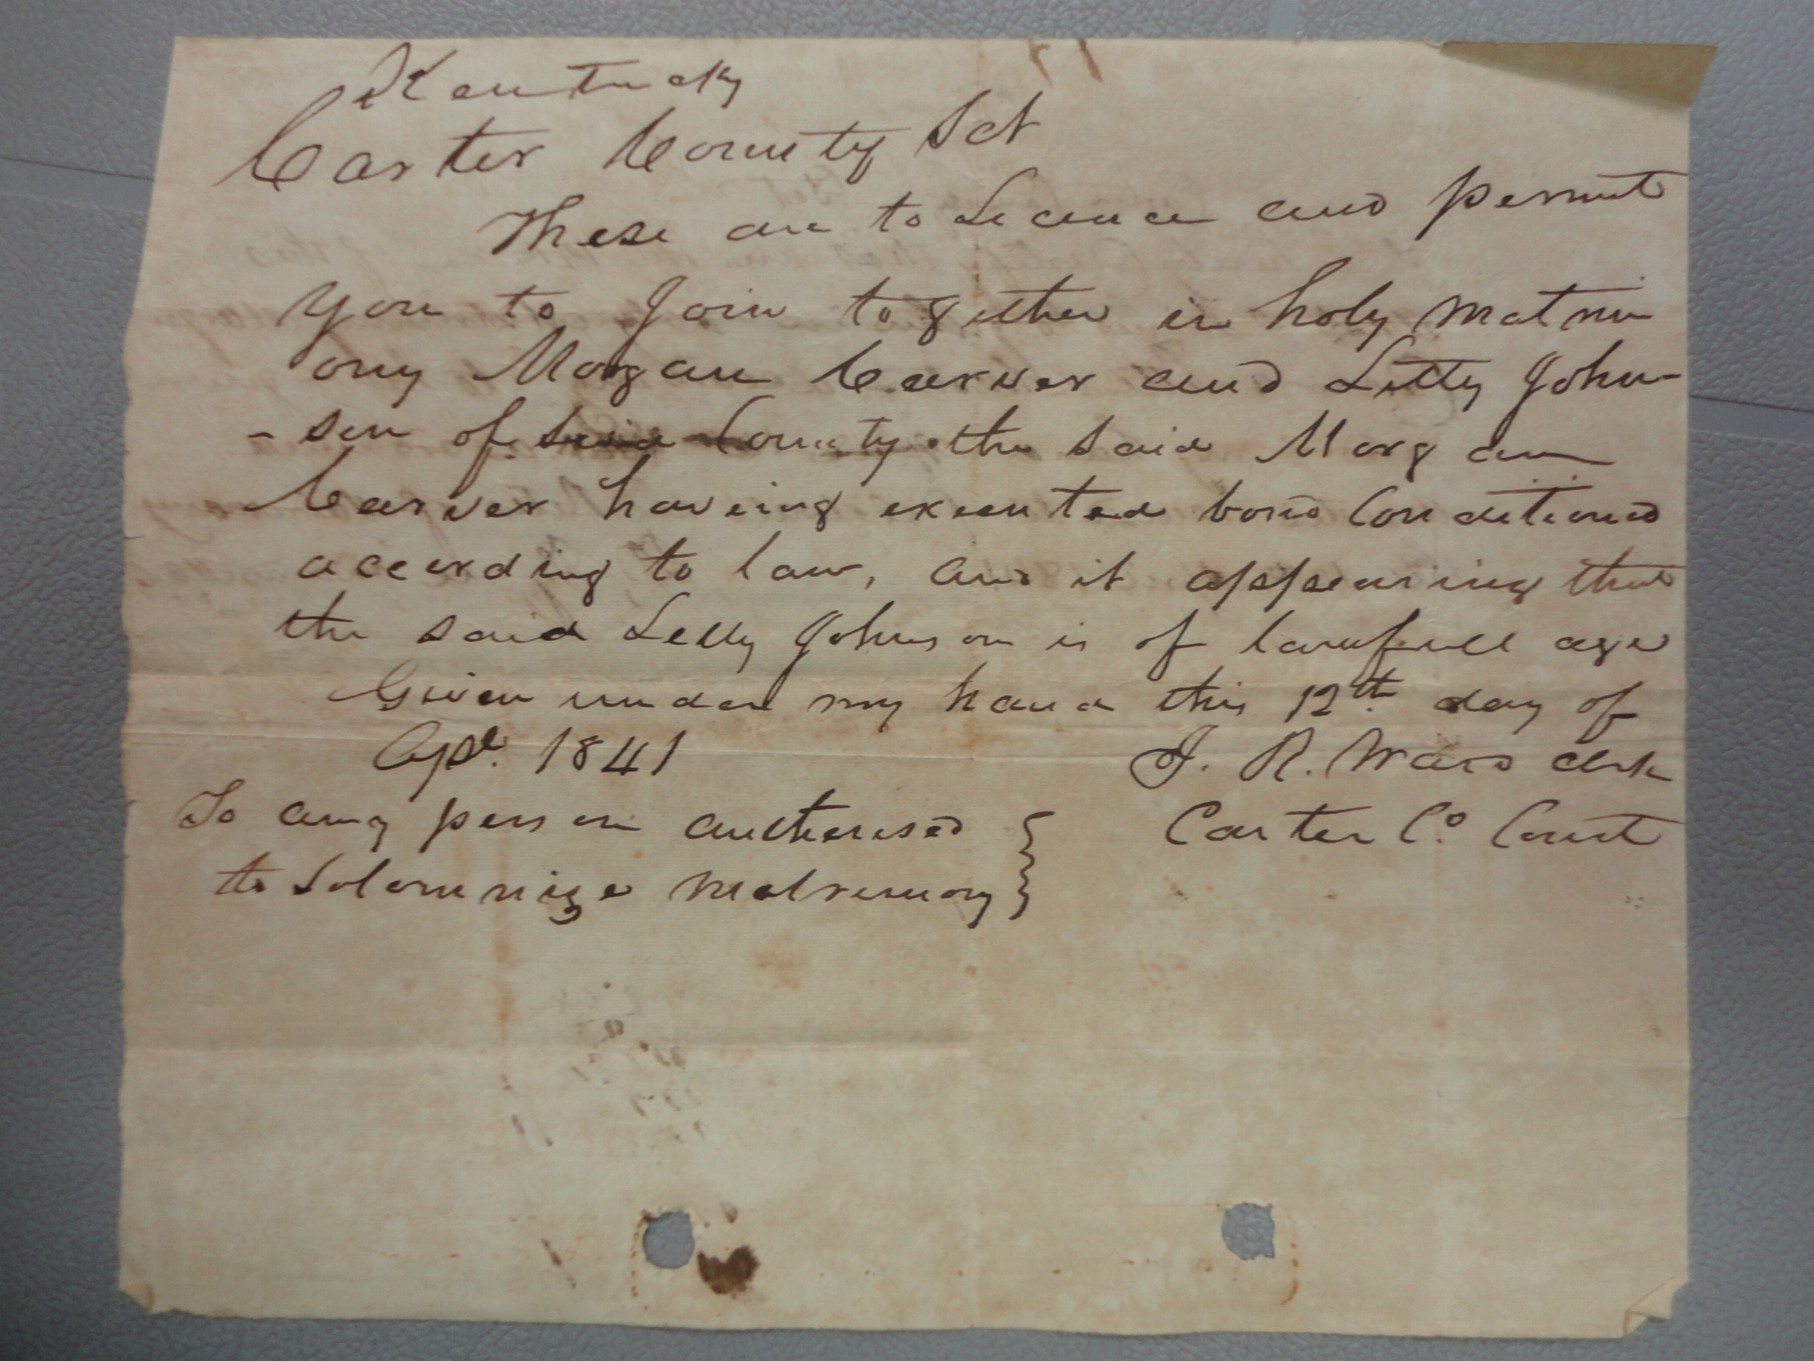 Kentucky
Carter County Sct
These are to Licence and permit
you to Join together in holy matrim
ony Morgan Carver and Letty John-
- son of Said County the Said Morgan
Carver having executed bond Conditioned
according to law, and it appearing that
the said Letty Johnson is of lawfull age
Given under my hand this 12th day of
Apl. 1841 J. R. Ward clerk
To any person autherised } Carter Co. Court
to Solemnize Matrimony